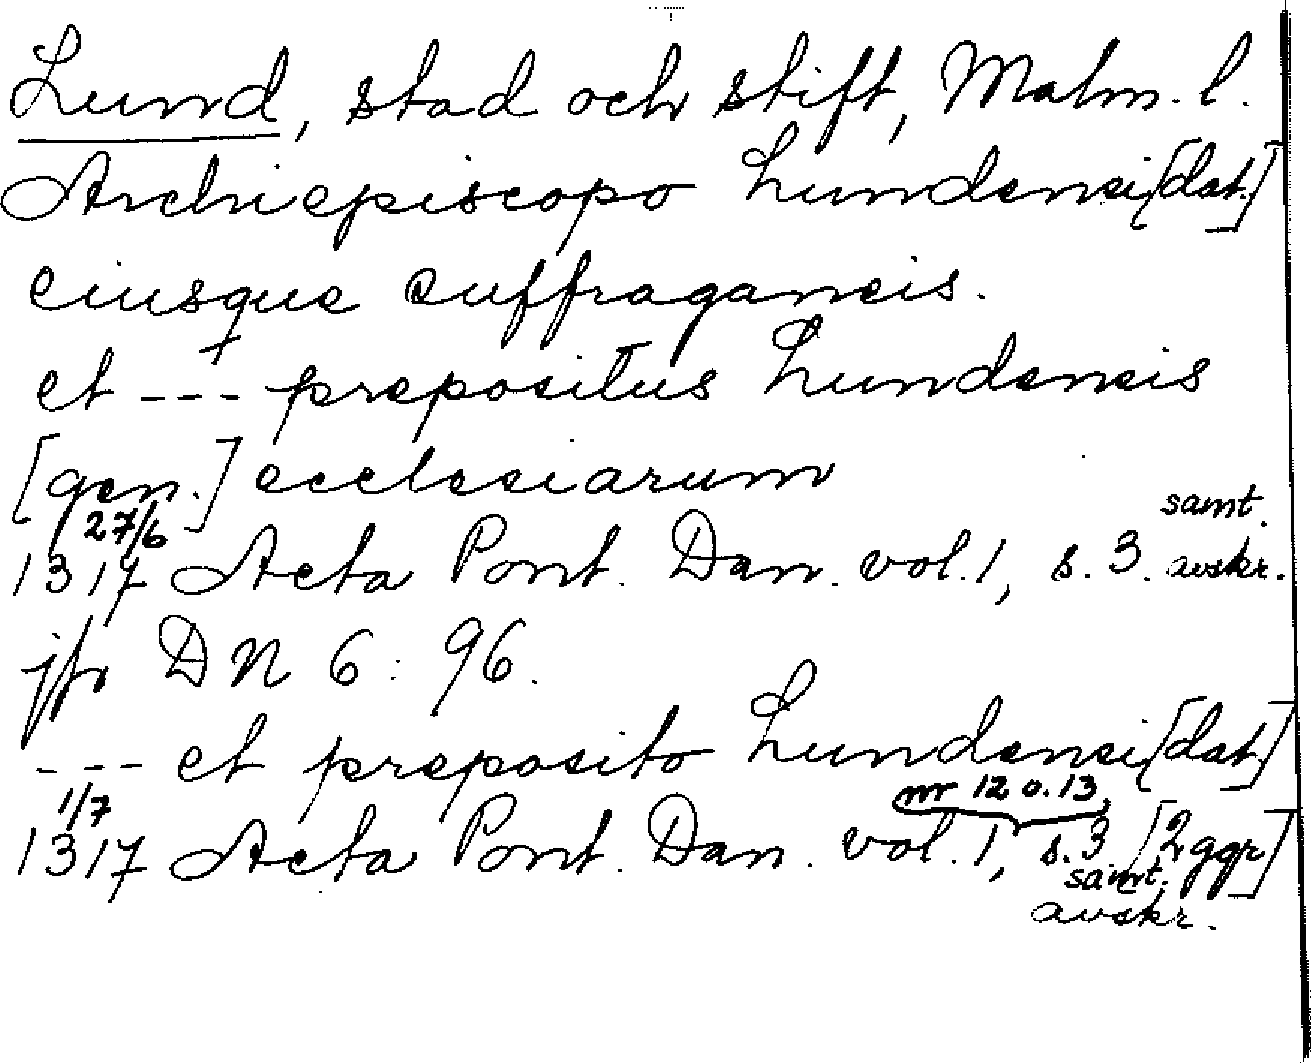 Lund, stad och stift, Malm. l.
Archiepiscopo Lundensi [dat.]
eiusque suffraganeis.
et --- prepositus Lundensis
[gen.] ecclesiarum
27/6 samt.
1317 Acta Pont. Dan. vol. 1, s. 3. avskr.
jfr DN 6: 96.
--- et preposito Lundensi [dat.]
1/7 nr 12 o. 13,
1317 Acta Pont. Dan. vol. 1, s. 3. [2 ggr]
samt.
avskr.